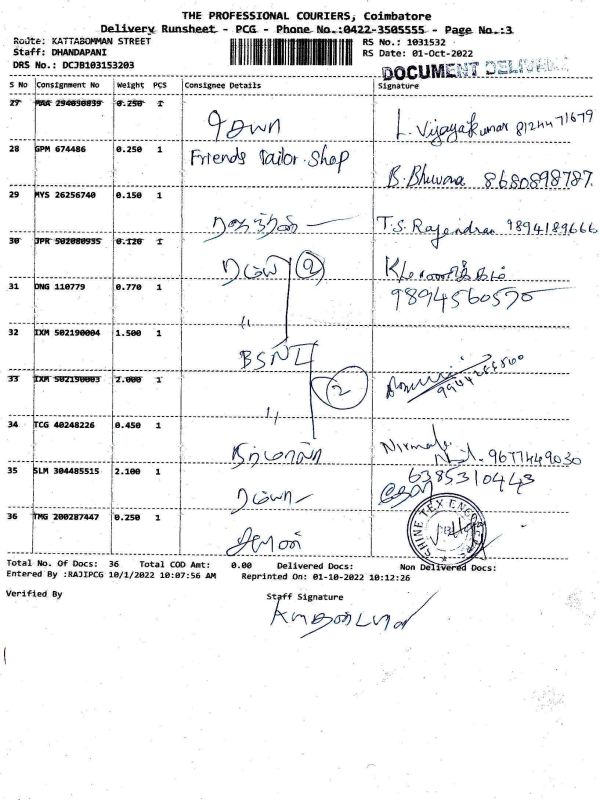 THE PROFESSIONAL COURIERS, Coimbatore
Delivery Runsheet - PCG - Phone No.:0422-3505555 - Page No.:3
Route: KATTABOMMAN STREET
Staff: DHANDAPANI
DRS No.: DCJB103153203
RS No.: 1031532
RS Date: 01-Oct-2022
DOCUMENT
S No Consignment No Weight PCS Consignee Details Signature
27 0.250 1
L. Vijayakumar 8124471679
28 GPM 674486 0.250 1 Friends Tailor Shop
B. Bhuvana 8680898787.
29 MYS 26256740 0.150 1
T.S. Rajendran 9894189666
30 JPR 502080935 0.120 1
2
31 ONG 110779 0.770 1 9894560570
"
32 IXM 502190004 1.500 1
BSNL
33 IXM 502190003 2.000 1
2
"
34 TCG 40248226 0.450 1
நிர்மலா Nirmala 9677449030
35 SLM 304485515 2.100 1 6385310443
ரம்யா
36 TMG 200287447 0.250 1
SHINE TEX
Total No. Of Docs: 36 Total COD Amt: 0.00 Delivered Docs: Non Delivered Docs:
Entered By :RAJIPCG 10/1/2022 10:07:56 AM Reprinted On: 01-10-2022 10:12:26
Verified By Staff Signature